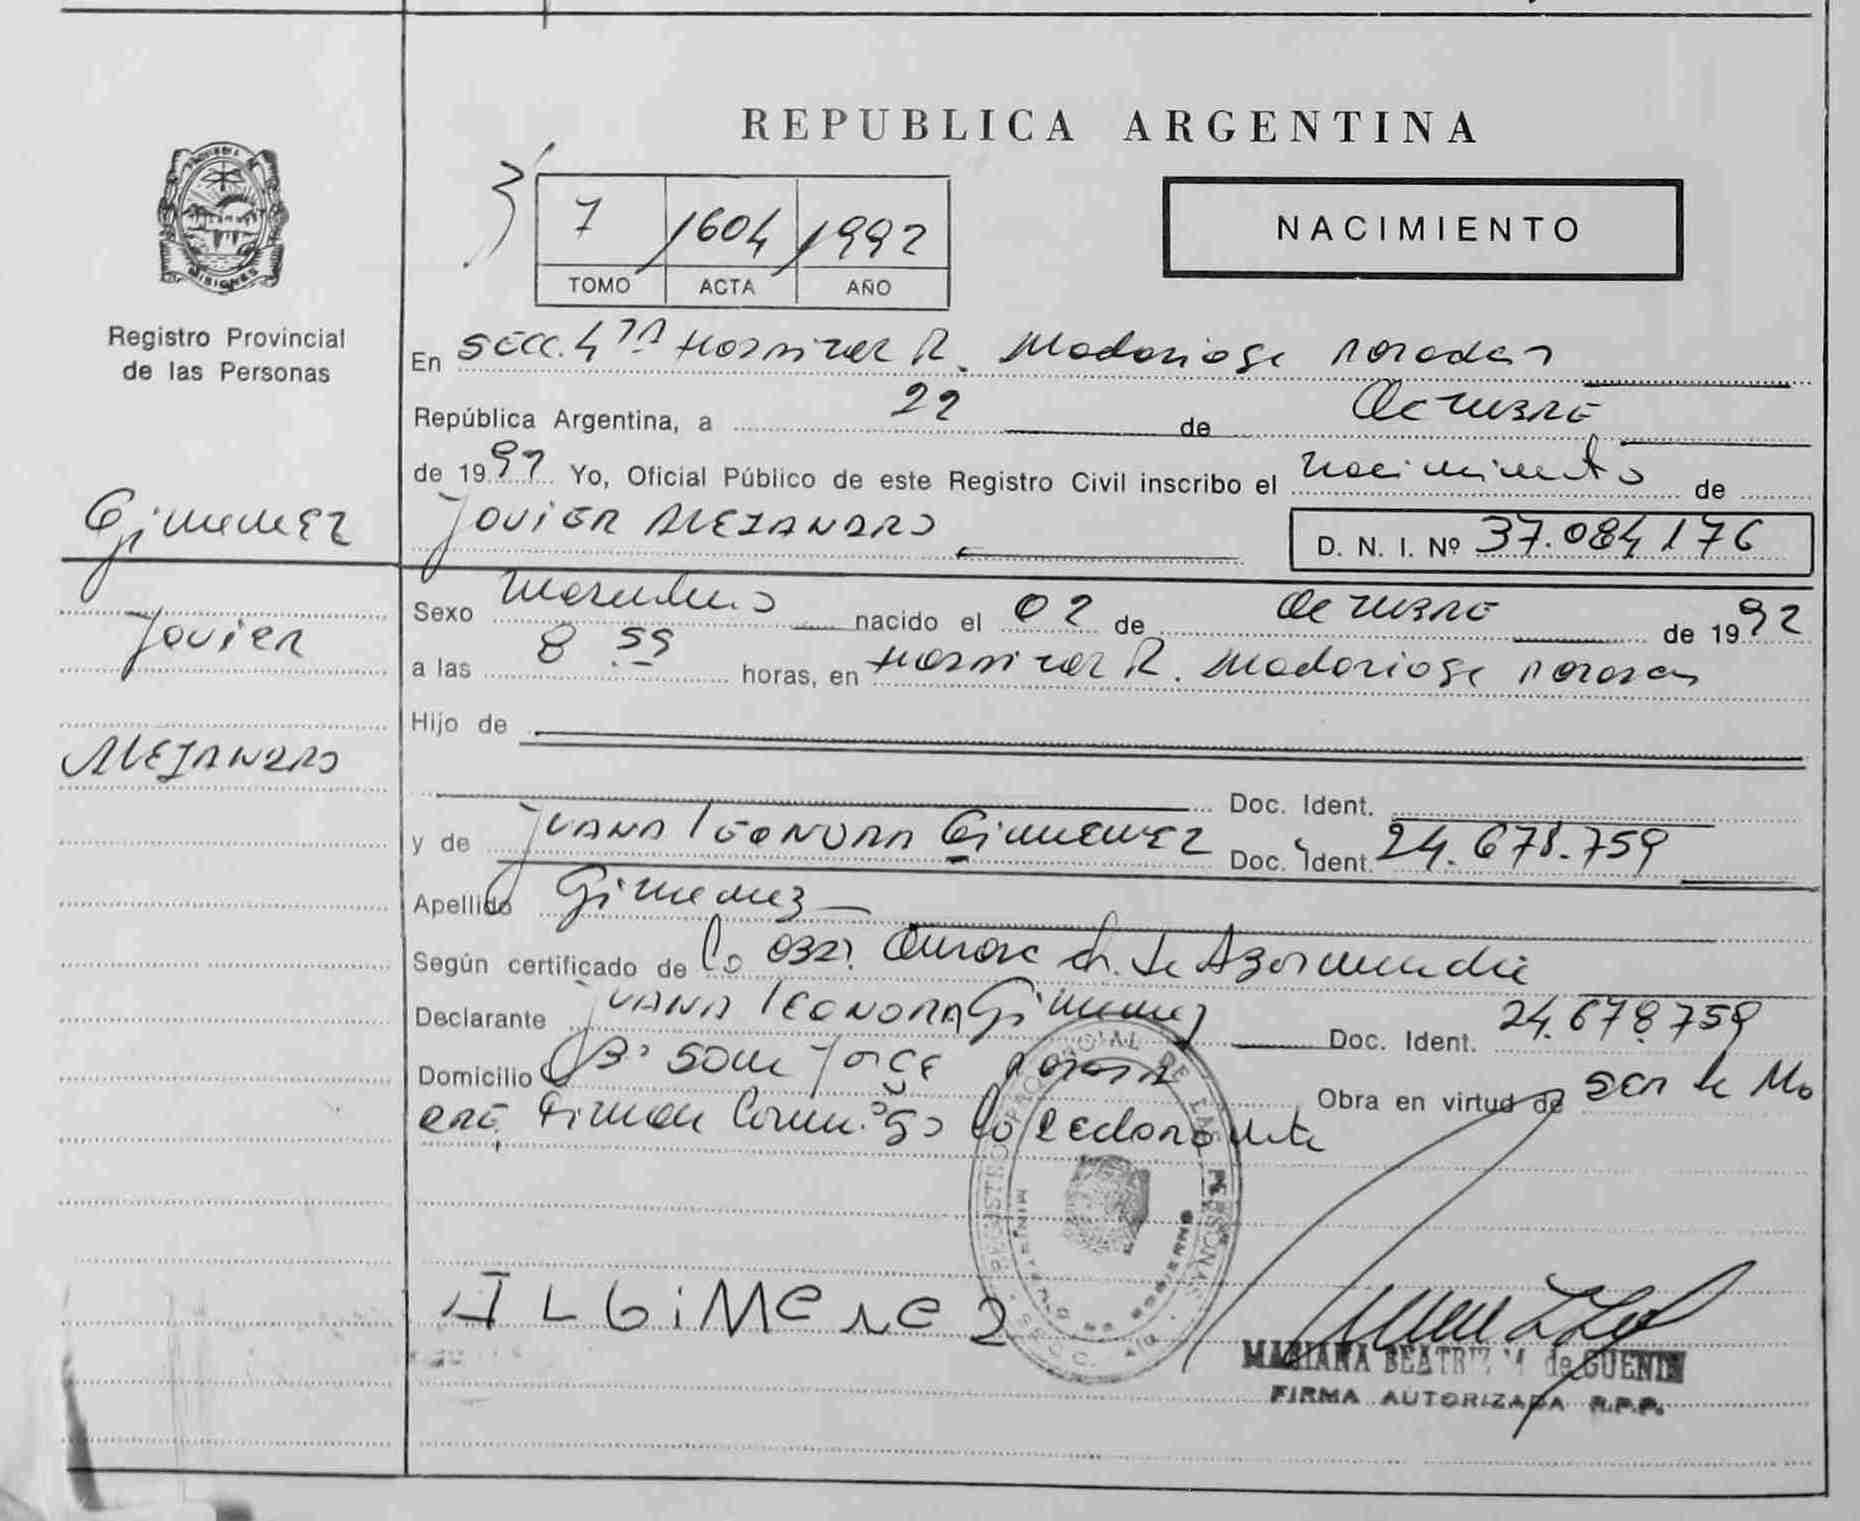 REPUBLICA ARGENTINA
7 1604 1992
TOMO ACTA AÑO
NACIMIENTO
MISIONES
Registro Provincial
de las Personas
Gimenez
Javier
Alejandro
En Secc. 4ta Hospital R. Madariaga Posadas
República Argentina, a 22 de Octubre
de 1992 Yo, Oficial Público de este Registro Civil inscribo el nacimiento de
Javier Alejandro D. N. I. Nº 37.084.176
Sexo Masculino nacido el 02 de Octubre de 1992
a las 8 55 horas, en Hospital R. Madariaga Posadas
Hijo de
Doc. Ident.
y de Juana Leonora Gimenez Doc. Ident. 24.678.759
Apellido Gimenez
Según certificado de la Obst. de Azarmendia
Declarante Juana Leonora Gimenez Doc. Ident. 24.678.759
Domicilio Bº San Jorge Posadas Obra en virtud de ser la Ma
dre, Firman Conmigo la declarante
REGISTRO PROVINCIAL DE LAS PERSONAS
MINISTERIO DE GOBIERNO
J L GiMeNez
MARIANA BEATRIZ M de GUENIN
FIRMA AUTORIZADA R.P.P.